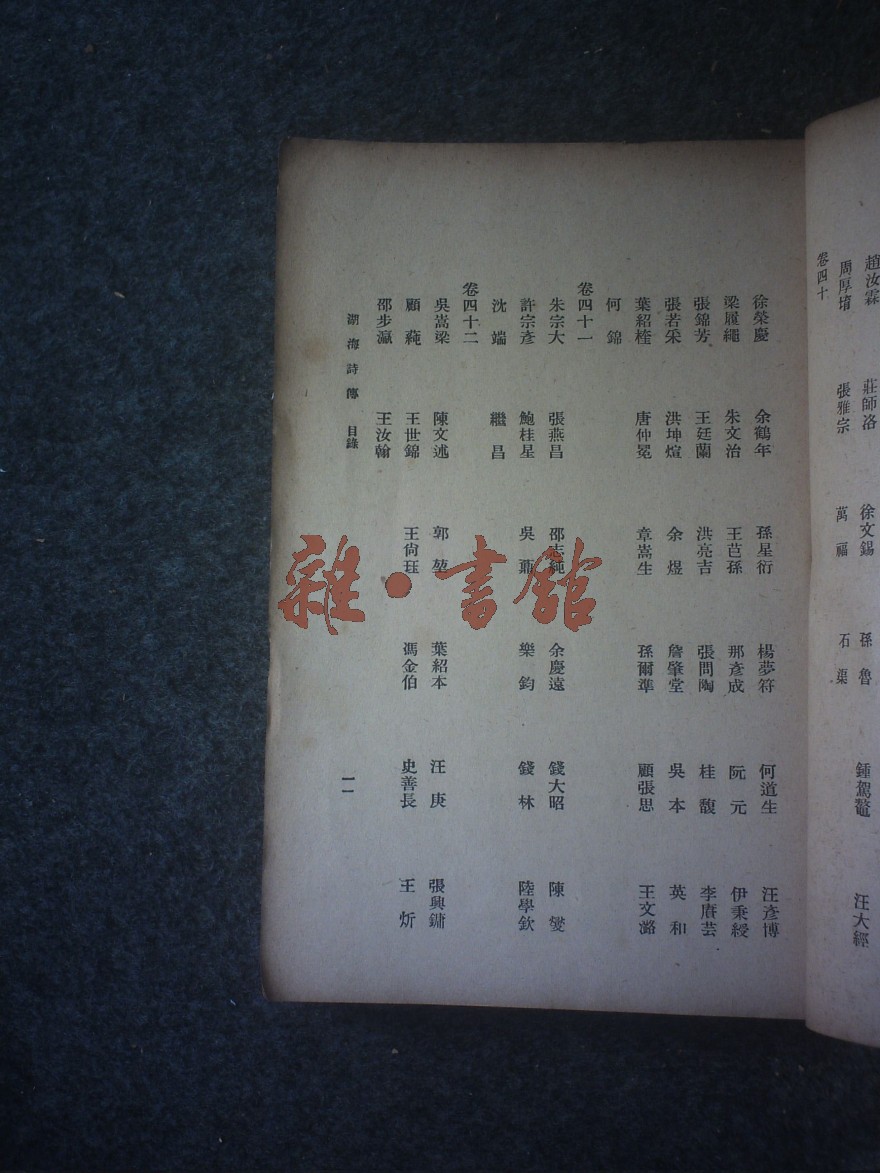 趙汝霖 莊師洛 徐文錫 孫魯 鍾駕鼇 汪大經
周厚堉 張雅宗 萬福 石渠
卷四十
徐榮慶 余鶴年 孫星衍 楊夢符 何道生 汪彥博
梁履繩 朱文治 王芑孫 那彥成 阮元 伊秉綬
張錦芳 王廷蘭 洪亮吉 張問陶 桂馥 李賡芸
張若采 洪坤煊 余煜 詹肇堂 吳本 英和
葉紹楏 唐仲冕 章嵩生 孫爾準 顧張思 王文潞
何錦
卷四十一
朱宗大 張燕昌 邵志純 余慶遠 錢大昭 陳燮
許宗彥 鮑桂星 吳鼒 樂鈞 錢林 陸學欽
沈端 繼昌
卷四十二
吳嵩梁 陳文述 郭堃 葉紹本 汪庚 張興鏞
顧蒓 王世錦 王尙珏 馮金伯 史善長 王炘
邵步瀛 王汝翰
湖海詩傳 目錄 一一
雜·書館